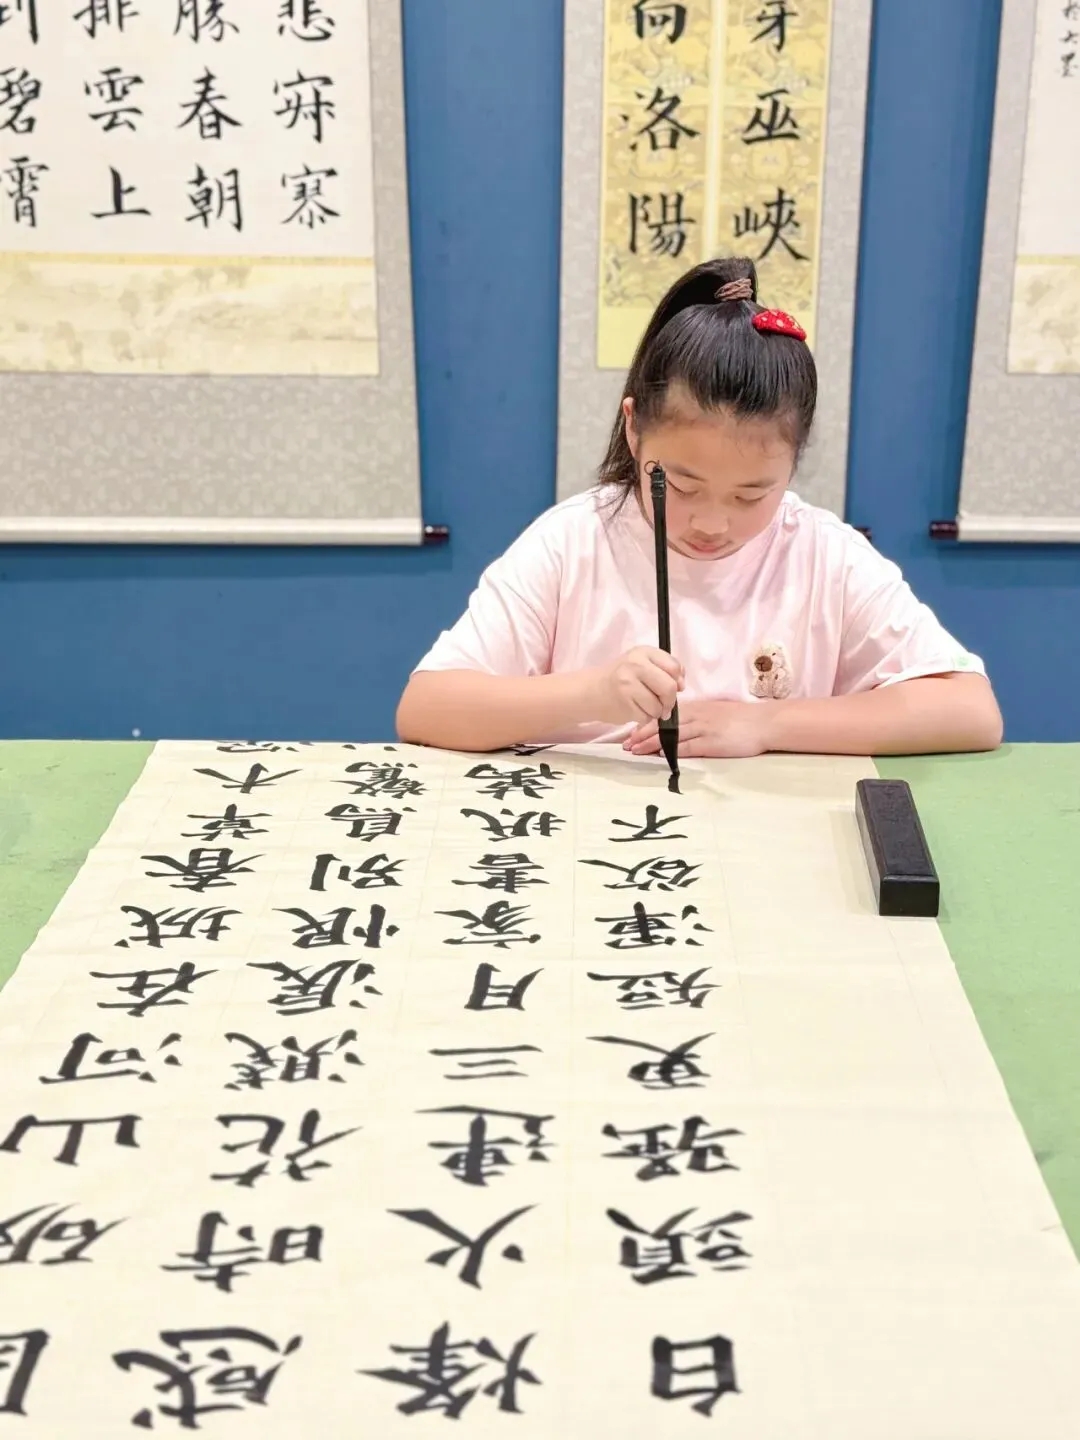 悲寂寥
勝春朝
排雲上
到碧霄
穿巫峽
向洛陽
破山河在城春草木深
感時花濺淚恨別鳥驚心
烽火連三月家書抵萬
白頭搔更短渾欲不